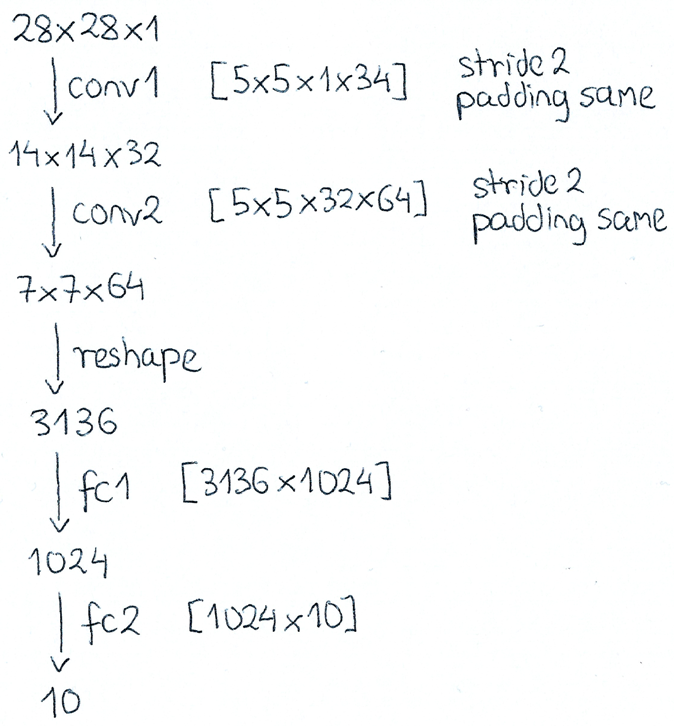 28×28×1
conv1 [5×5×1×34] stride 2
padding same
14×14×32
conv2 [5×5×32×64] stride 2
padding same
7×7×64
reshape
3136
fc1 [3136×1024]
1024
fc2 [1024×10]
10